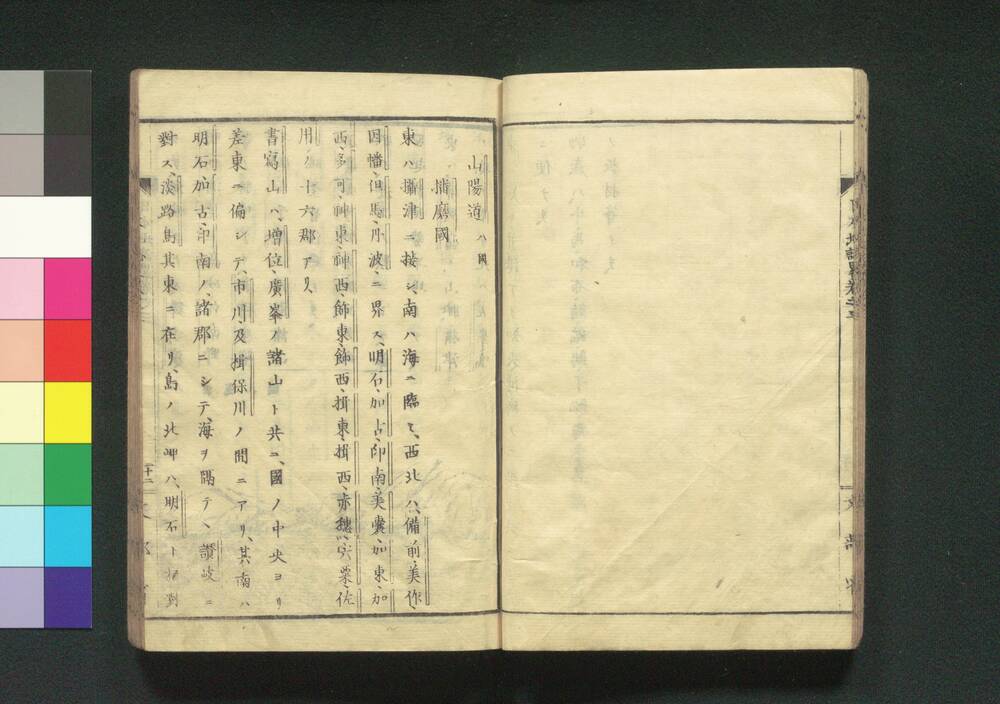 日本地誌略卷之三
文部省
山陽道 八國
播磨國
東ハ攝津ニ接シ、南ハ海ニ臨ミ、西北ハ、備前、美作、
因幡、但馬、丹波、ニ界ス、明石、加古、印南、美囊、加東、加
西、多可、神東、神西、飾東、飾西、揖東、揖西、赤穗、宍粟、佐
用、ノ十六郡アリ、
書寫山ハ、增位、廣峯ノ諸山ト共ニ、國ノ中央ヨリ
差東ニ偏シテ、市川、及揖保川ノ間ニアリ、其南ハ
明石、加古、印南ノ、諸郡ニシテ、海ヲ隔テヽ、讃岐ニ
對ス、淡路島其東ニ在リ、島ノ北岬ハ、明石ト相對